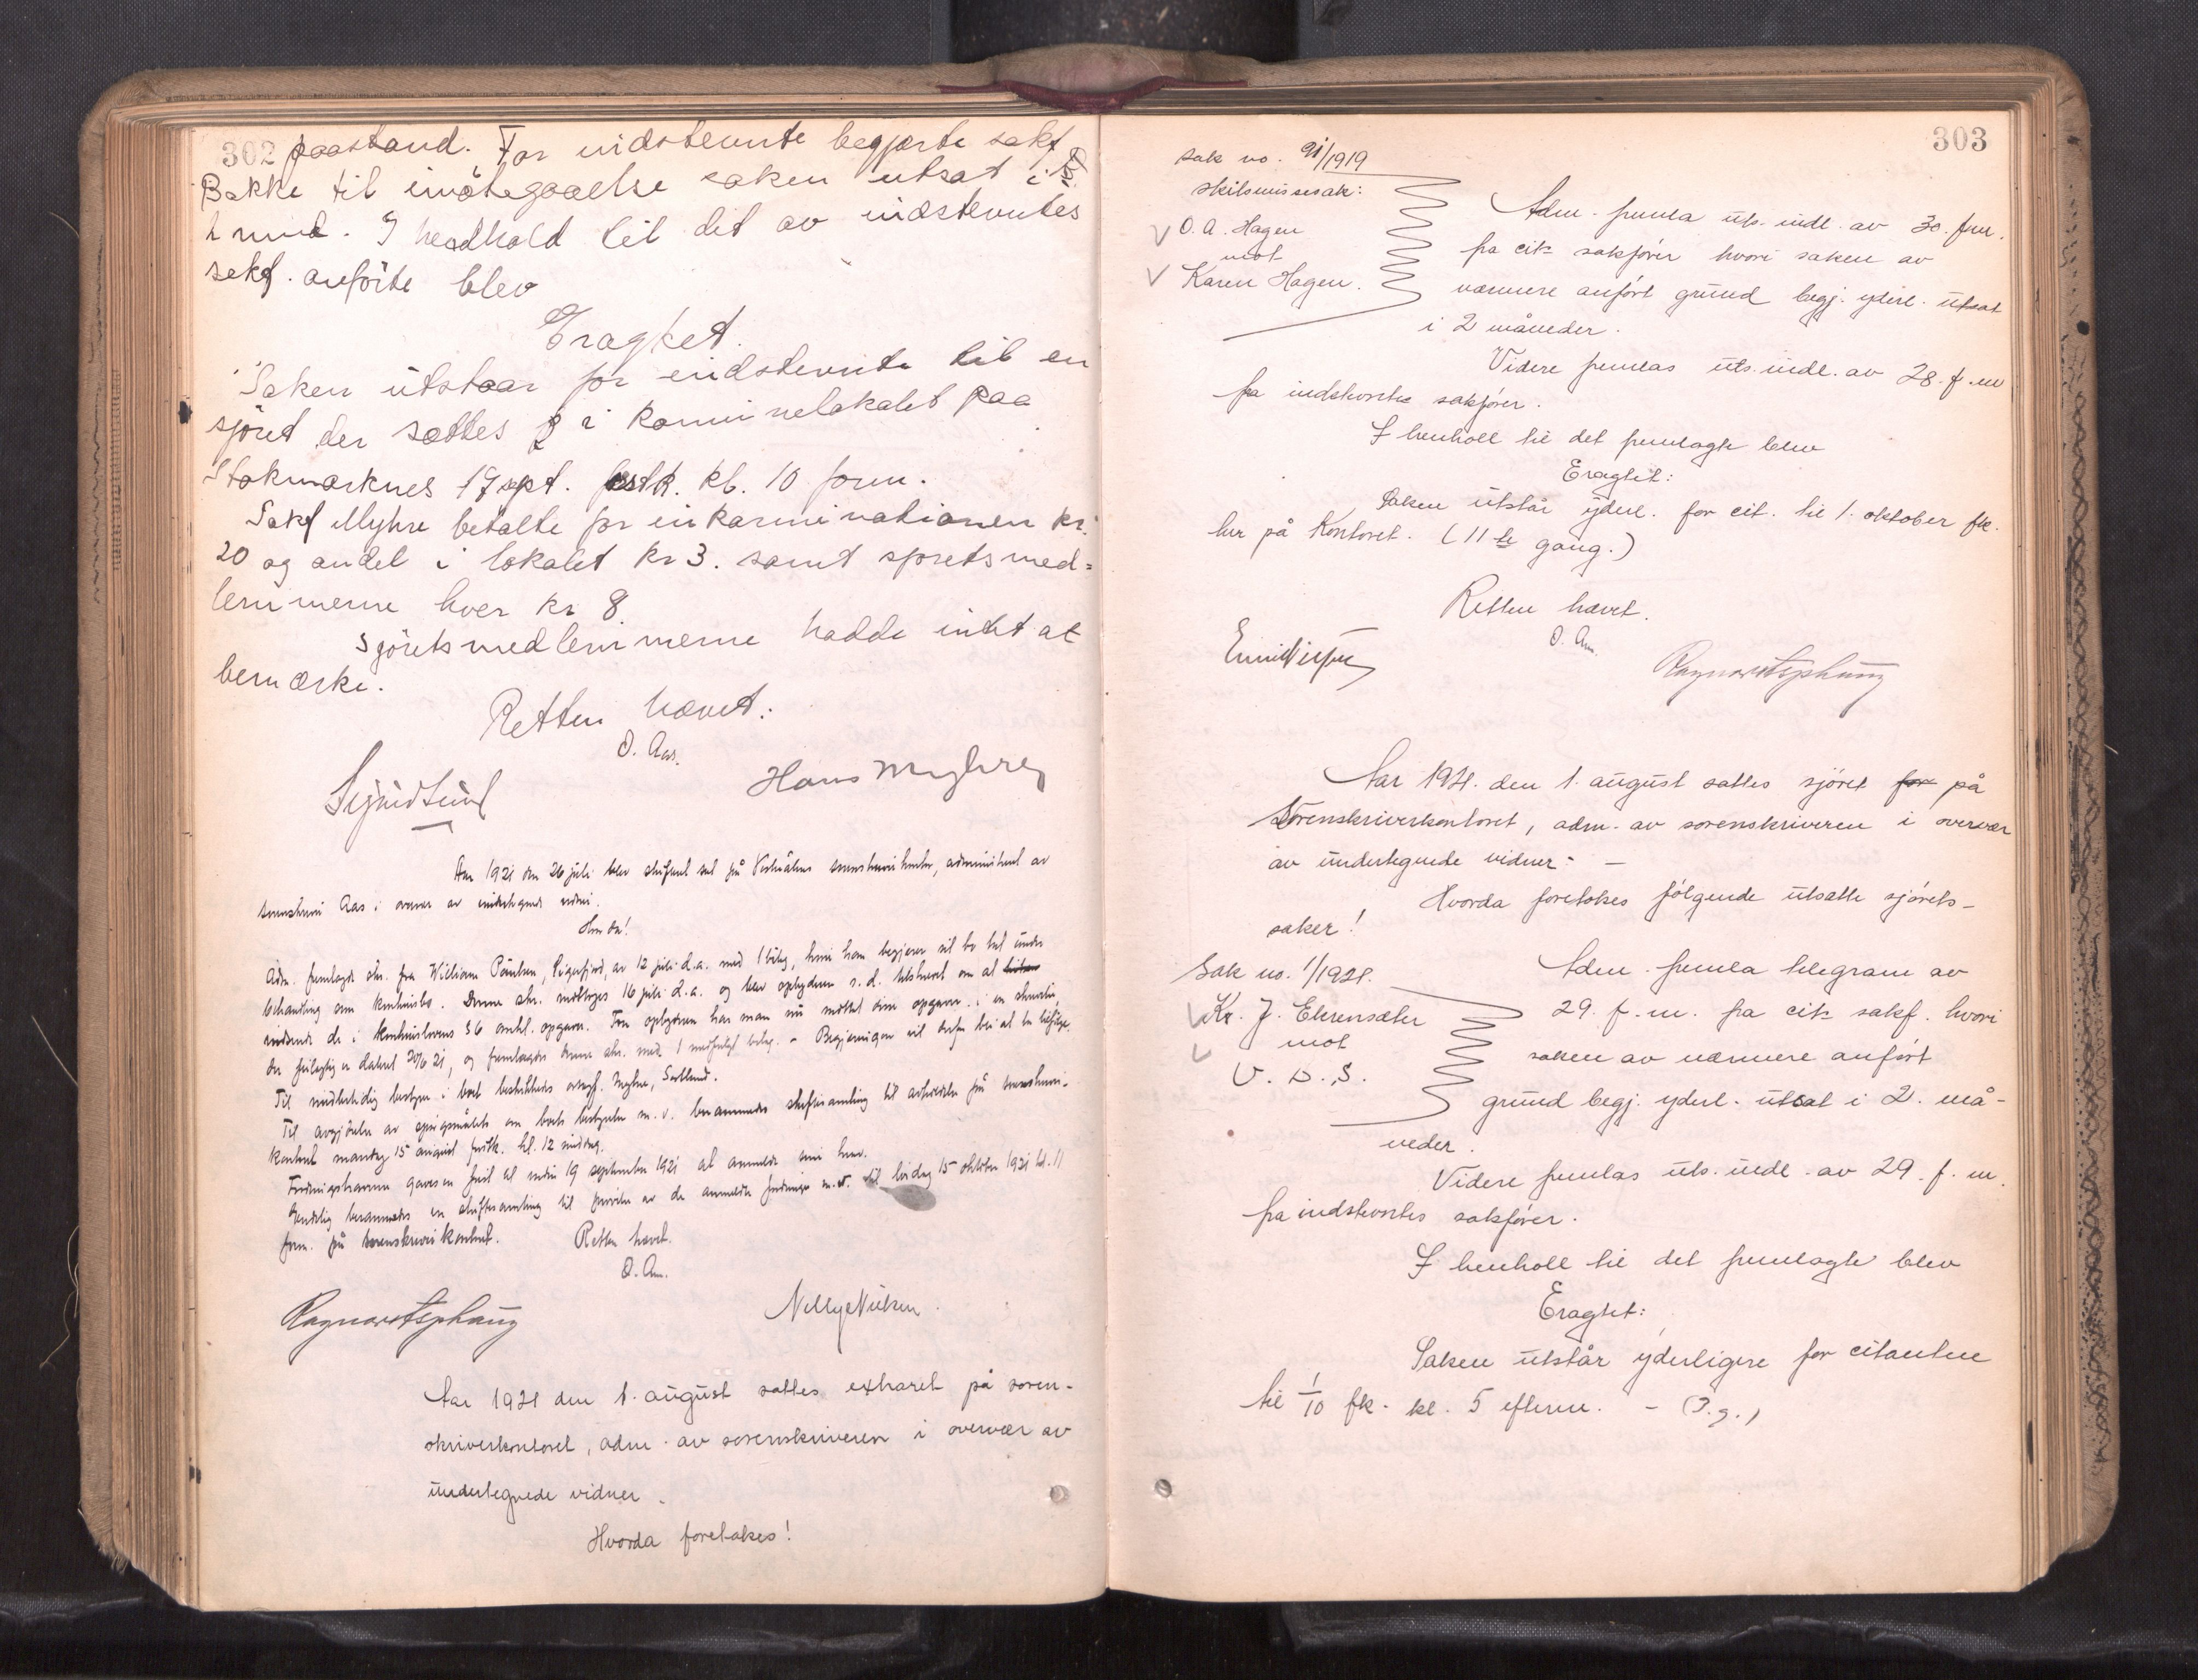 302 paastand. For indstevnte begjærte sakf.
Bakke til imøtegaaelse saken utsat i
1 mnd. I hendhold til det av indstevntes
sakf. anførte blev
Eragtet.
Saken utstaar for indstevnte til en
sjøret der sættes i kominelokalet paa
Stokmarknes 17 sept. kl. 10 form.
Sakf Myhre betalte for inkaminationen kr.
20 og andel i lokalet kr 3. samt sjøretsmed=
lemmerne hver kr 8.
Sjøretsmedlemmerne hadde intet at
bemærke.
Retten hævet:
O. Aas.
Sigurd Lund
Hans Myhre
Aar 1921 den 26 juli blev skifteret sat på Vesterålens sorenskriverkontor, administreret av
sorenskriver Aas i overvær av undertegnede vidner.
Hvorda!
Adm. fremlagde skr. fra William Paulsen, Sigerfjord, av 12 juli d.a. med 1 bilag, hvori han begjærer sit bo tat under
behandling som konkursbo. Denne skr. mottoges 16 juli d.a. og blev opbyderen s.d. tilskrevet om at
indsende de i konkurslovens § 6 omhl. opgaver. Fra opbyderen har man nu mottat disse opgaver i en skrivelse,
der feilagtig er dateret 20/6 21, og fremlægges denne skr. med 1 medfulgt bilag. - Begjæringen vil derfor bli at ta tilfølge.
Til midlertidig bestyrer i boet beskikkedes overrsf. Myhre, Sortland.
Til avgjørelse av spørsmålet om boets bestyrelse m.v. berammedes skiftesamling til avholdelse på sorenskriver-
kontoret mandag 15 august førstk. kl. 12 middag.
Fordringshaverne gaves en frist til inden 19 september 1921 at anmelde sine krav.
Endelig berammedes en skiftesamling til prøvelse av de anmeldte fordringer m.v. til lørdag 15 oktober 1921 kl. 11
form. på sorenskriverkontoret.
Retten hævet.
O. Aas.
Ragnar Asphaug
Nelly Nielsen.
Aar 1921 den 1. august sattes extraret på soren-
skriverkontoret, adm. av sorenskriveren i overvær av
undertegnede vidner.
Hvorda foretokes!
303
Sak no. 91/1919
skilsmissesak:
O. A. Hagen
mot
Karen Hagen.
Adm. fremla uts. indl. av 30. f.m.
fra cit⸗ sakfører hvori saken av
nærmere anført grund begj. yderl. utsat
i 2 måneder.
Videre fremlas uts. indl. av 28. f.m
fra indstevntes sakfører.
I henhold til det fremlagte blev
Eragtet:
Saken utstår yderl. for cit. til 1. oktober fk.
her på Kontoret. (11te gang.)
Retten hævet.
O. Aas.
Ragnar Asphaug
Aar 1921. den 1. august sattes sjøret for på
Sorenskriverkontoret, adm. av sorenskriveren i overvær
av undertegnede vidner: —
Hvorda foretokes følgende utsatte sjørets-
saker!
Sak no. 1/1921.
Kr. J. Ellrensæter
mot
V. D. S.
Adm. fremla telegram av
29. f.m. fra cit⸗ sakf. hvori
saken av nærmere anført
grund begj. yderl. utsat i 2. må-
neder.
Videre fremlas uts. indl. av 29. f.m.
fra indstevntes sakfører.
I henhold til det fremlagte blev
Eragtet:
Saken utstår yderligere for citanten
til 1/10 fk. kl. 5 efterm. - (3.g.)